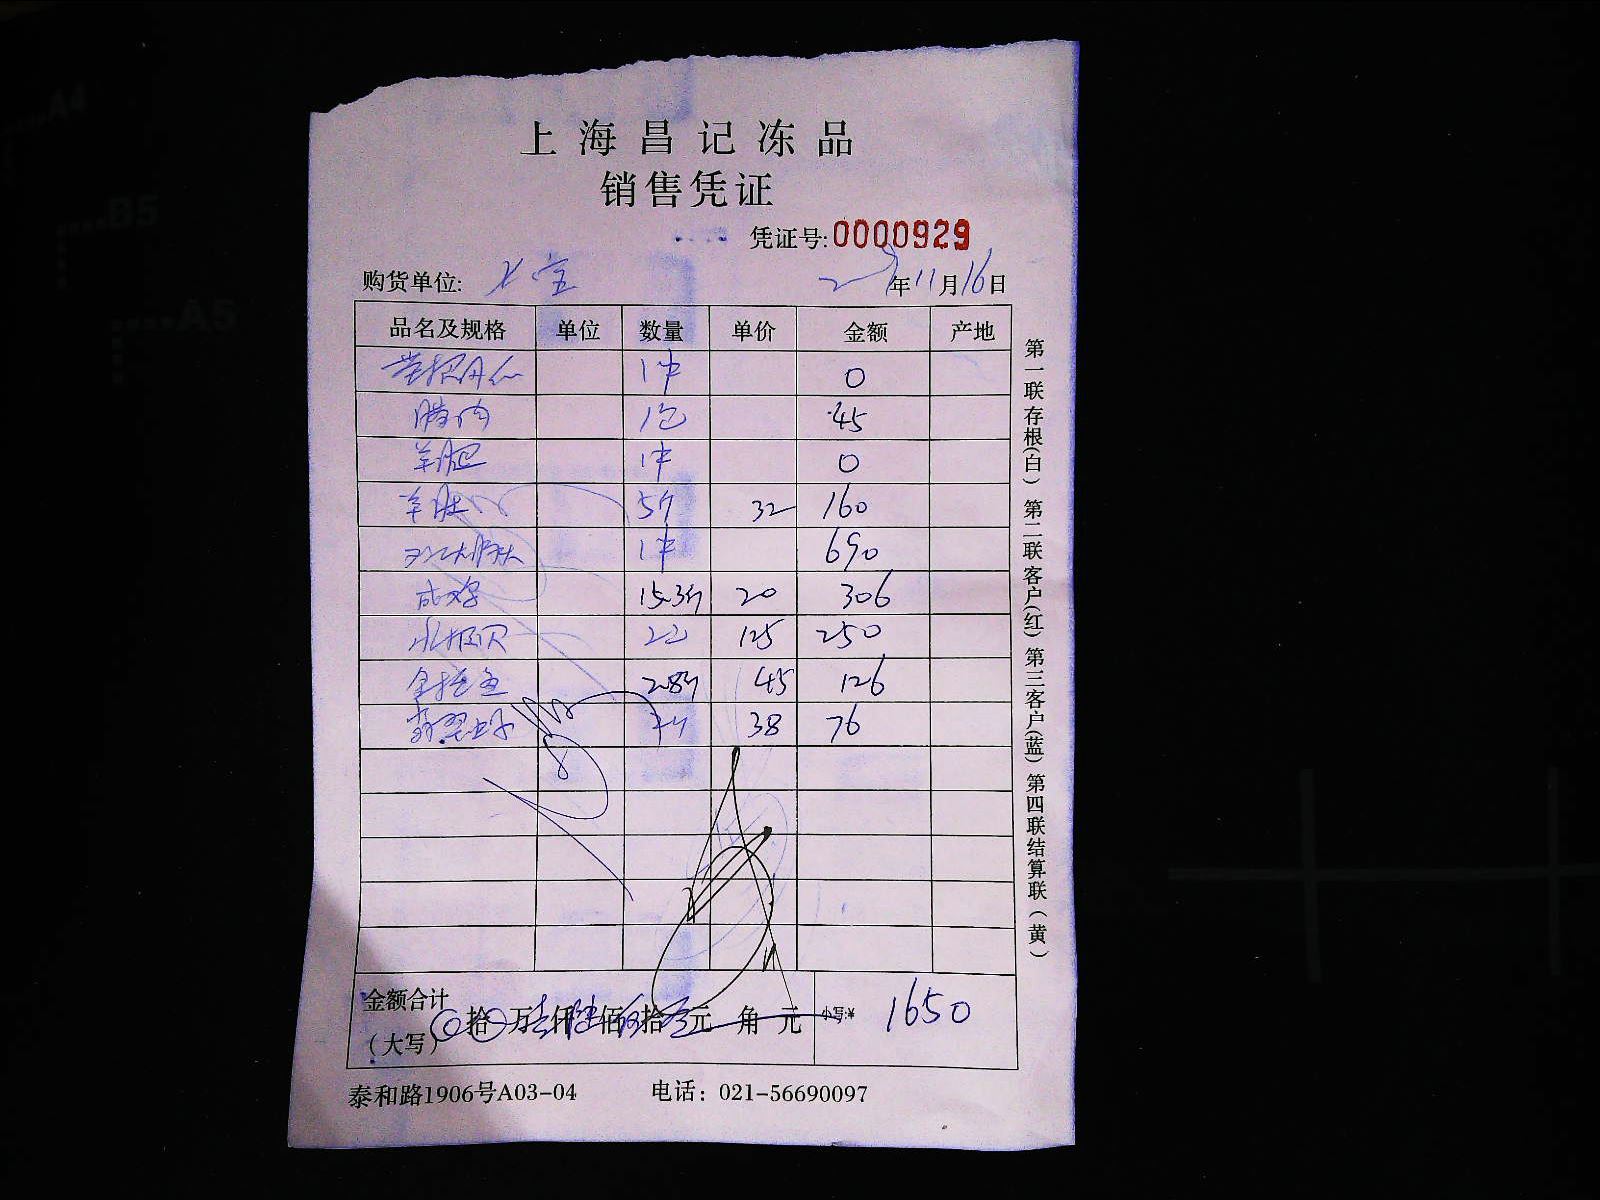 上海昌记冻品
销售凭证
凭证号:0000929
购货单位: 年11月16日
品名及规格 单位 数量 单价 金额 产地
1件 0
腊肉 1包 45
羊肥 1件 0
羊肚 5斤 32 160
1件 690
15.3斤 20 306
北极贝 2包 125 250
2.8斤 45 126
38 76
金额合计(大写) 拾 万壹仟陆佰伍拾零元 角 元 小写:¥ 1650
泰和路1906号A03-04 电话: 021-56690097
第一联存根(白) 第二联客户(红) 第三客户(蓝) 第四联结算联(黄)
A4
B5
A5